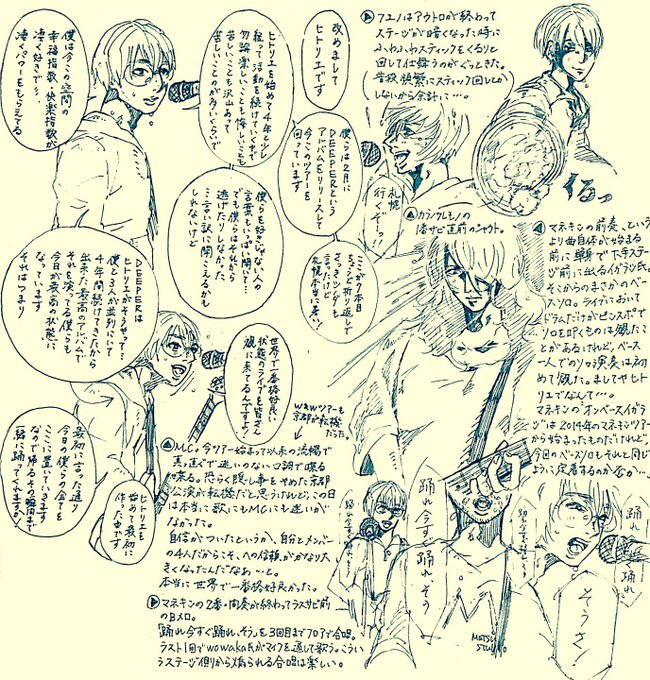 ▶フエノはアウトロが終わって
ステージが暗くなった時に
ふわふわスティックをくるりと
回して仕舞うのがぐっときた。
普段頻繁にスティック回しとか
しないから余計に…。
くるっ
改めまして
ヒトリエです
ヒトリエを始めて4年と少し
経って活動を続けていく中で
勿論楽しいことも悔しいことも
苦しいことも沢山あって
苦しいことの方が多いくらいで
僕は今この空間の
幸福指数、快楽指数が
凄く好きで…、
凄くパワーをもらえてる
札幌
行くぞーっ!!
▲カラノワレモノの
1番サビ直前のシャウト。
僕らは2月に
DEEPERという
アルバムをリリースして
今このツアーを
回っています
僕らを好きじゃない人の
言葉もいっぱい聞いて…
でも僕らはそれから
逃げたりしなかった
…言い訳に聞こえるかも
しれないけど
ここが7本目
ちょうど折り返しで
言ったけど
札幌本当に若い!
DEEPERは
ヒトリエがそうやって…
僕と3人が並列でいて
4年間続けてきたから
出来た最高のアルバムで
それを演ってる僕らも
今日が最高の状態に
なっています
それはつまり
世界で一番格好良い
状態のライブを皆さん
観に来てるんですよ!
wxwツアーも
京都が転機
だった。
最初に言った通り
今日の僕らの全てを
ここに置いていきます
なので帰るその瞬間まで
一緒に踊ってくれますか!
ヒトリエを
始めて最初に
作った曲です
▲MC。今ツアー始まって以来の流暢で
真っ直ぐで迷いのない口調で喋る
喋る。恐らく腹し事をやめた京都
公演が転機だと思うけれど、この日
は本当に歌にもMCにも迷いが
なかった。
自信がついたというか、自分とメンバー
の4人だからこそ、への信頼がかなり大
きくなったんだなぁ…と。
本当に世界で一番格好良かった。
▶マネキンの2番・間奏が終わってラスサビ前
のBメロ。
「踊れ今すぐ踊れ、そう」を3回目までフロアで合唱。
ラスト1回でwowaka氏がマイクを通して歌う。こうい
うステージ側から煽られる合唱は楽しい。
◀マネキンの前奏、という
より曲自体が始まる
前に単身で下手ステー
ジ前に出るイガラシ氏。
そこからのまさかのベー
スソロ。ライブにおいて
ドラムだけがピンスポで
ソロを叩くものは観たこ
とがあるけれど、ベース
一人でのソロ演奏は初
めて観た。ましてやヒト
リエでなんて…。
マネキンの「オンベースイガラ
シ」は2014年のマネキンツアー
から始まったものだけれど、
今回のベースソロもそれと同じ
ように定着するのか否か…
踊れ今すぐ踊れそう
踊れ
踊れ
そうさ!
MATSU